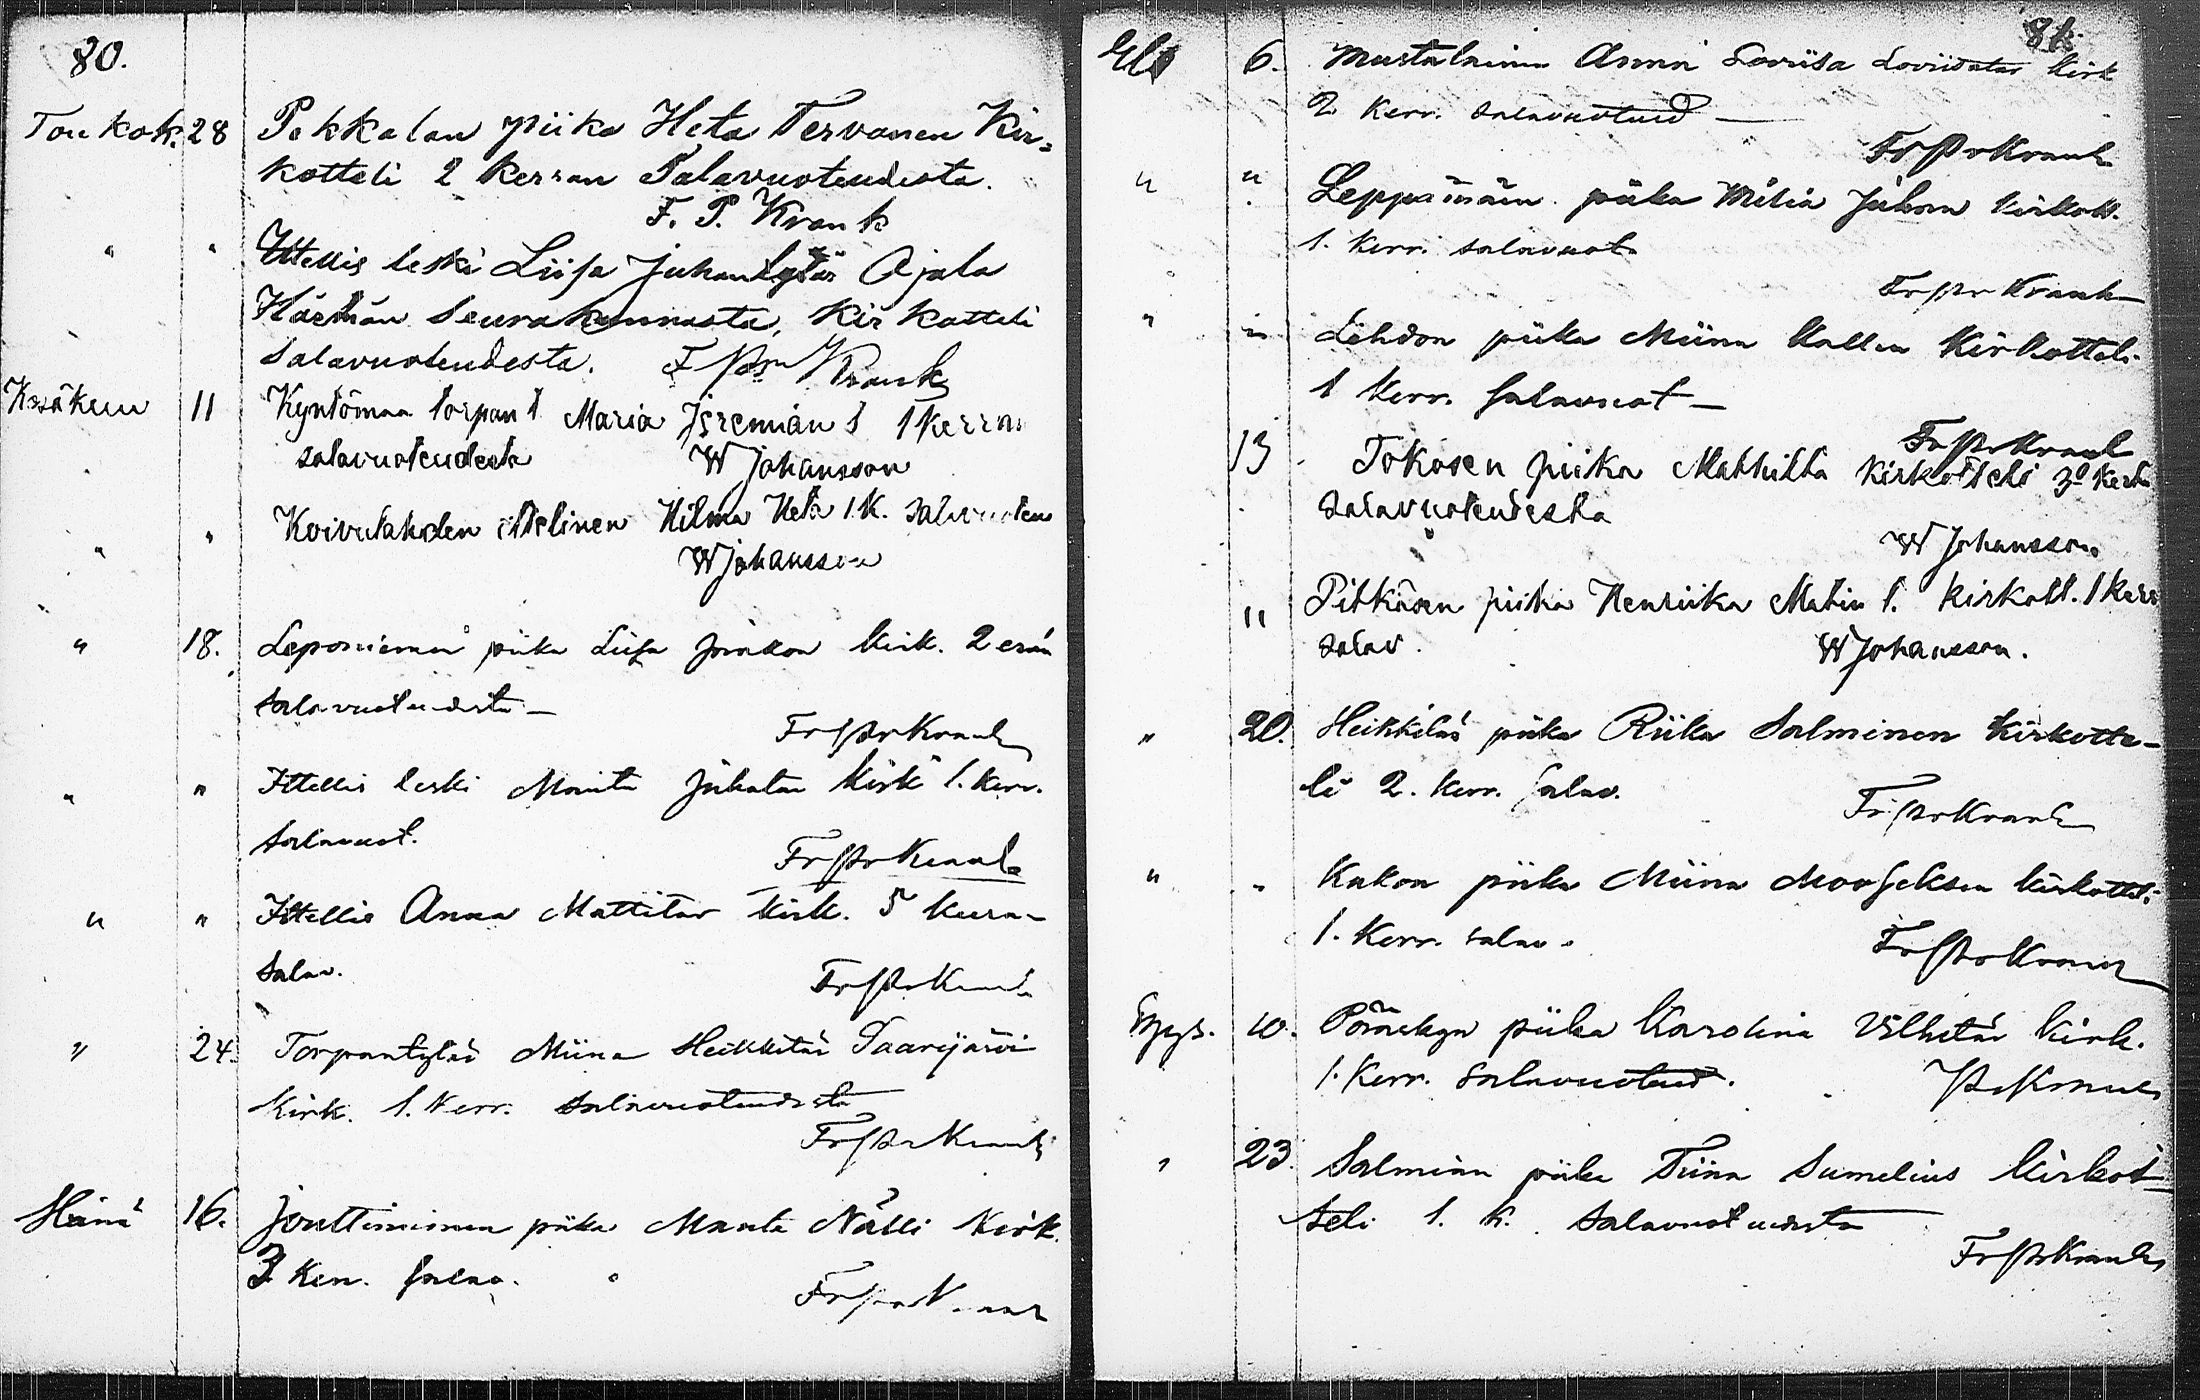 80.
Toukok. 28 Pekkalan piika Heta Tervanen Kir-
kotteli 2 kerran Salavuoteudesta.
F. P. Krank
" " Ittellis leski Liisa Juhantytär Ojala
Härmän Seurakunnasta, Kirkotteli
salavuoteudesta. F Pr Krank
Kesäkuu 11 Kyntömaa torpan t Maria Jeremian t 1 kerran
salavuoteudesta W Johansson
" " Koivulahden ittelinen Hilma Heta 1.K. salavuoteu
W Johansson
" 18. Leponiemen piika Liisa Jaakon kirk. 2 erän
salavuoteudesta —
Fr Pr Krank
" " Ittellis leski Maria Juhatar kirk 1. kerr.
salavuot.
Fr Pr Krank
" " Ittellis Anna Mattitar kirk. 5 kerra-
salav.
Fr Pr Krank
" 24. Torpantytär Miina Heikkitär Saarijärvi
kirk. 1. kerr. salavuoteudesta
Fr Pr Krank
Heinä 16. Jouttiminen piika Manta Nälli kirk.
3 kerr. salav.
Fr Pr Krank
81.
Elo 6. Mustalainen Anna Loviisa Loviisatar kirk
2 kerr. salavuoteud —
Fr Pr Krank
" " Leppämäen piika Milia Juhon kirkott.
1. kerr. salavuot
Fr Pr Krank
" " Lehdon piika Miina Kallen kirkotteli
1 kerr. salavuot —
Fr Pr Krank
13 Tokosen piika Mathilta kirkotteli 3d kerta
salavuoteudesta
W Johansson
" Pitkäsen piika Henriika Matin t. kirkott. 1 kerr
salav. W Johansson.
" 20. Heikkilän piika Riika Salminen kirkotte-
li 2. kerr. salav.
Fr Pr Krank
" " Kukon piika Miina Mooseksen kirkotteli
1. kerr. salav.
Fr Pr Krank
Syys. 10. piika Karolina Vilhetär kirk.
1. kerr. salavuoteud. Pr Krank
" 23. Salmian piika Tiina Sumelius kirkot-
teli 1. k. salavuoteudesta
Fr Pr Krank